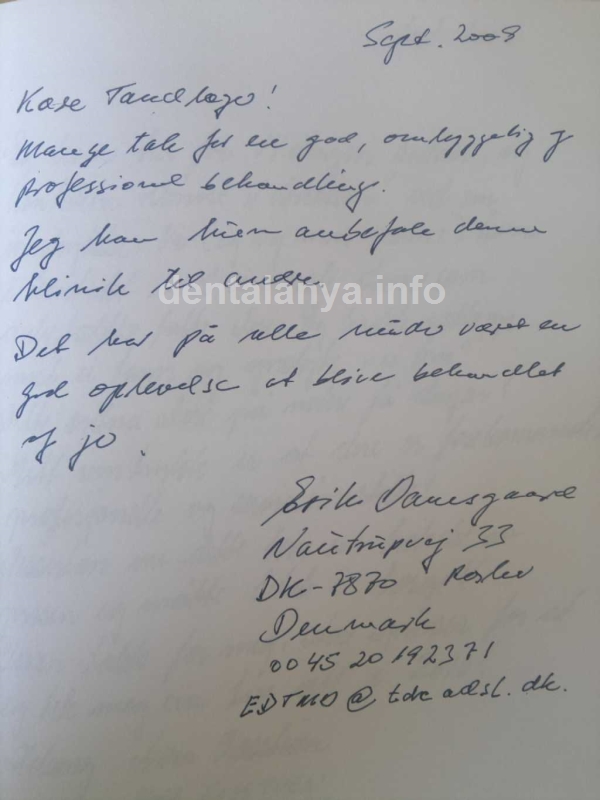 Sept. 2008
Kære Tandlæge!
Mange tak for en god, omhyggelig og
professionel behandling.
Jeg kan kun anbefale denne
klinik til andre.
dentalanya.info
Det har på alle måder været en
god oplevelse at blive behandlet
af jo.
Erik Damsgaard
33
DK-7870 Roslev
Denmark
0045 20192371
EDTMD@tdcadsl.dk.